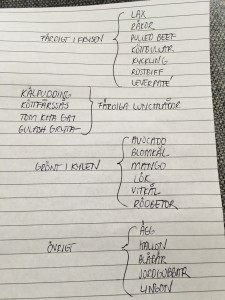 LAX
RÄKOR
PULLED BEEF
FÄRDIGT I FRYSEN
KÖTTBULLAR
KYCKLING
ROSTBIFF
LEVERPATÉ
KÅLPUDDING
KÖTTFÄRSSÅS
FÄRDIGA LUNCHLÅDOR
TOM KHA GAI
GULASH GRYTA
AVOCADO
BLOMKÅL
GRÖNT I KYLEN
MANGO
LÖK
VITKÅL
RÖDBETOR
ÄGG
HALLON
ÖVRIGT
BLÅBÄR
JORDGUBBAR
LINGON